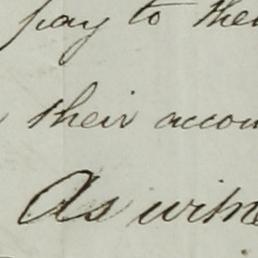 pay to the
their accou
As witne